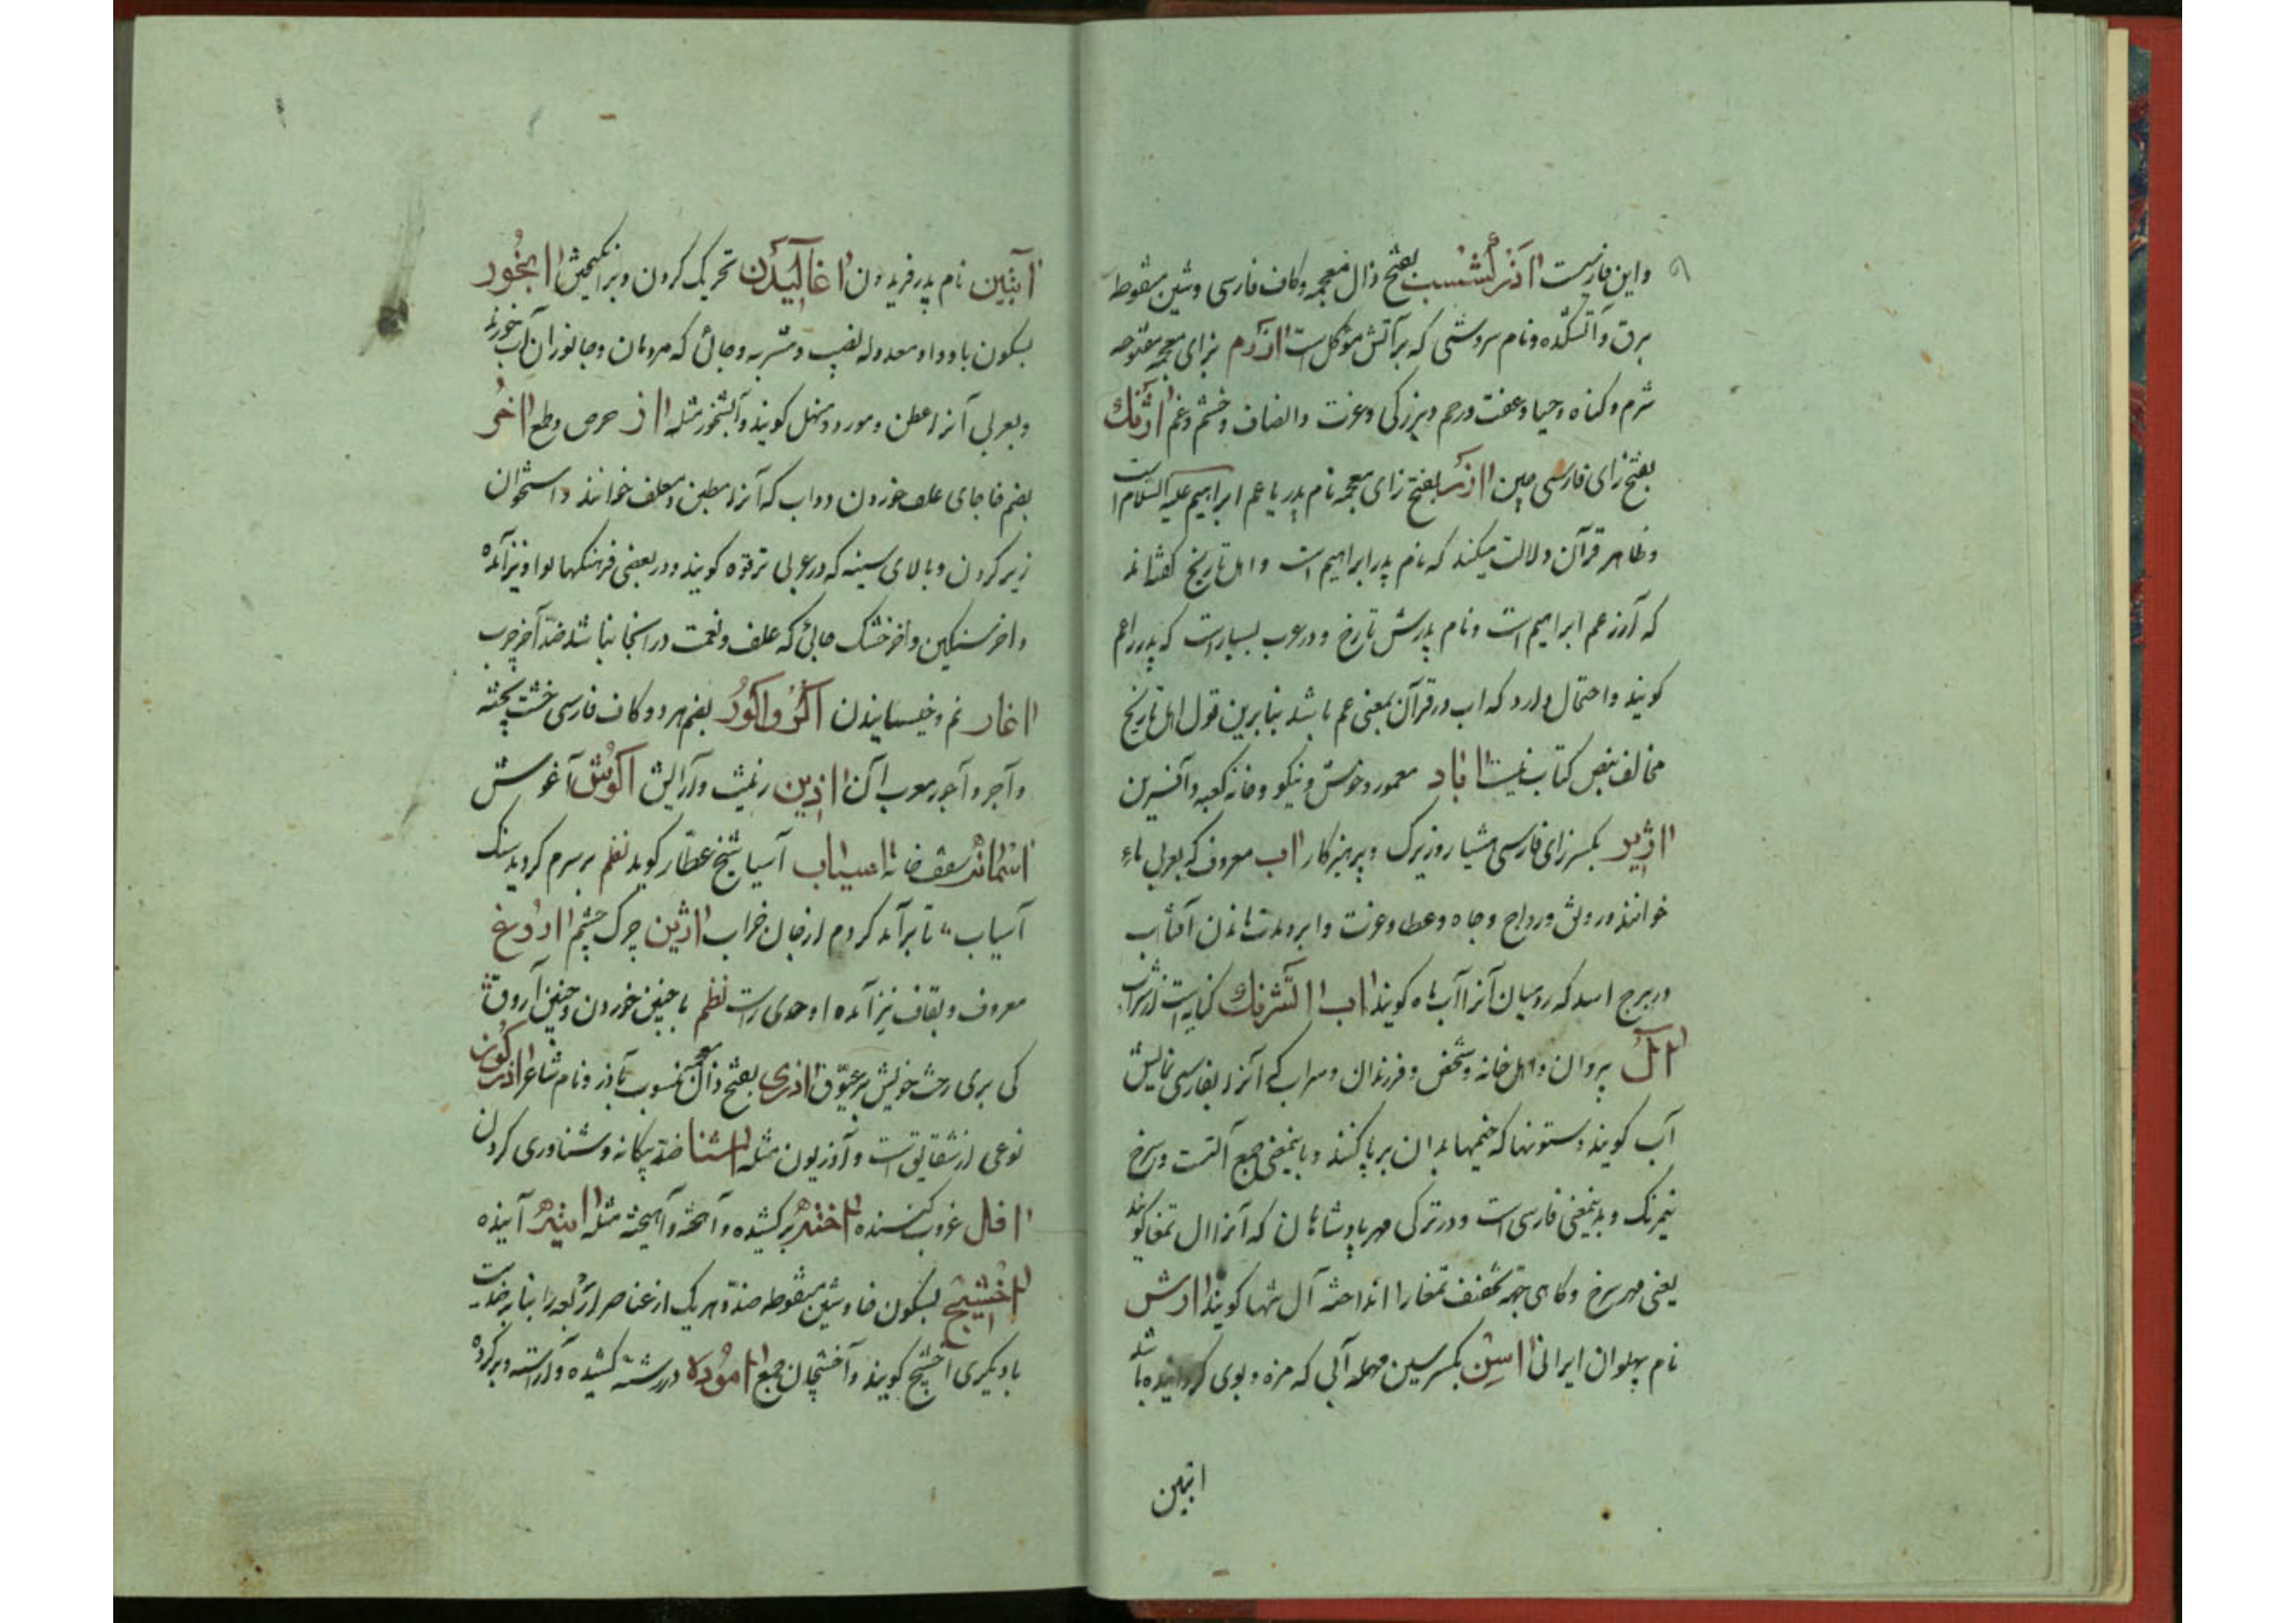 ۹
واین فارسیست آذرگشسب بفتح ذال معجمه وکاف فارسی وشین منقوط
برق وآتشکده ونام سروشی که برآتش موکل است آزرم بزای معجمه مفتوحه
شرم وکناه وحیا وعفت ورحم وبزرکی وعزت وانصاف وخشم وغم آژفنک
بفتح زای فارسی چین آزر بفتح زای معجمه نام پدر یا عم ابراهیم علیه السلام است
وظاهر قرآن دلالت میکند که نام پدر ابراهیم است واهل تاریخ کفته‌اند
که آزر عم ابراهیم است ونام پدرش تارخ ودر عرب بسیار است که پدر را عم
کویند واحتمال دارد که اب در قرآن بمعنی عم باشد بنابرین قول اهل تاریخ
مخالف نص کتاب نیست آباد معمور وخوش ونیکو وخانه کعبه وآفرین
آژیر بکسر زای فارسی هشیار وزیرک وپرهیزکار آب معروف که بعربی ماء
خوانند ورونق ورواج وجاه وعطا وعزت وآبرو ومدت ماندن آفتاب
در برج اسد که رومیان آنرا آب ماه کویند آب آتش رنک کنایت از شراب
آل پروان واهل خانه وشخص وفرزندان وسراب که آنرا بفارسی نمایش
آب کویند وستونها که خیمها بدان برپا کنند وباینمعنی جمع آلتست وسرخ
نیمرنک وبدینمعنی فارسی است ودر ترکی مهر پادشاهان که آنرا آل تمغا کویند
یعنی مهر سرخ وکاهی جهة تخفیف تمغا را انداخته آل تنها کویند آرش
نام پهلوان ایرانی آسن بکسر سین مهمله آبی که مزه وبوی کردانیده باشد
آبتین
آبتین نام پدر فریدون آغالیدن تحریک کردن وبرانکیختن آبخور
بسکون با وواو معدوله نصیب ومشربه وجائی که مردمان وجانوران آب خورند
وبعربی آنرا عطن ومورد ومنهل کویند وآبشخور مثله آز حرص وطمع آخر
بضم خا جای علف خوردن دواب که آنرا معلف خوانند واستخوان
زیر کردن وبالای سینه که در عربی ترقوه کویند ودر بعضی فرهنکها بواو نیز آمده
وآخر سنکین وآخر خشک جائی که علف ونعمت در آنجا نباشد ضد آخر چرب
آغار نم وخیسانیدن آکر وآکور بضم هر دو کاف فارسی خشت پخته
وآجر وآجور معرب آن آذین زینت وآرایش آکوش آغوش
آسمانه سقف خانه آسیاب آسیا شیخ عطار کوید نظم بر سرم کردید سنک
آسیاب تا برآمد کردم از جان خراب آژین چرک چشم آروغ
معروف وبقاف نیز آمده اوحدی راست نظم با چنین خوردن وچنین آروق
کی بری رخت خویش بر عیوق آذری بفتح ذال معجمه منسوب بآذر ونام شاعر آذرکون
نوعی از شقایق است وآذریون مثله آشنا ضد بیکانه وشناوری کردن
آفل غروب کننده آخته برکشیده وآهخته مثله آینده
آخشیج بسکون خا وشین منقوطه ضد وهر یک از عناصر اربعه را بنابر ضدیت
با دیکری آخشیج کویند وآخشیجان جمع آموده در رشته کشیده وآراسته وپر کرده